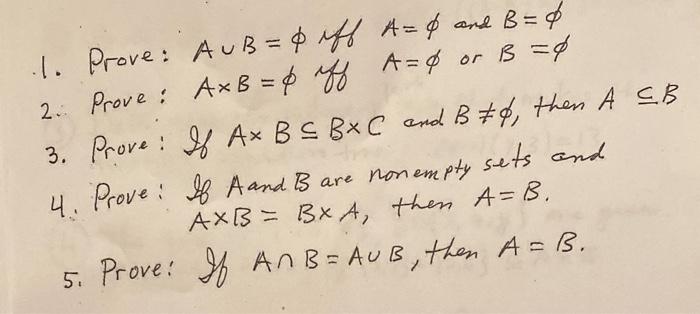 1. Prove: A ∪ B = ϕ iff A = ϕ and B = ϕ
2. Prove: A × B = ϕ iff A = ϕ or B = ϕ
3. Prove: If A × B ⊆ B × C and B ≠ ϕ, then A ⊆ B
4. Prove: If A and B are nonempty sets and
A × B = B × A, then A = B.
5. Prove: If A ∩ B = A ∪ B, then A = B.